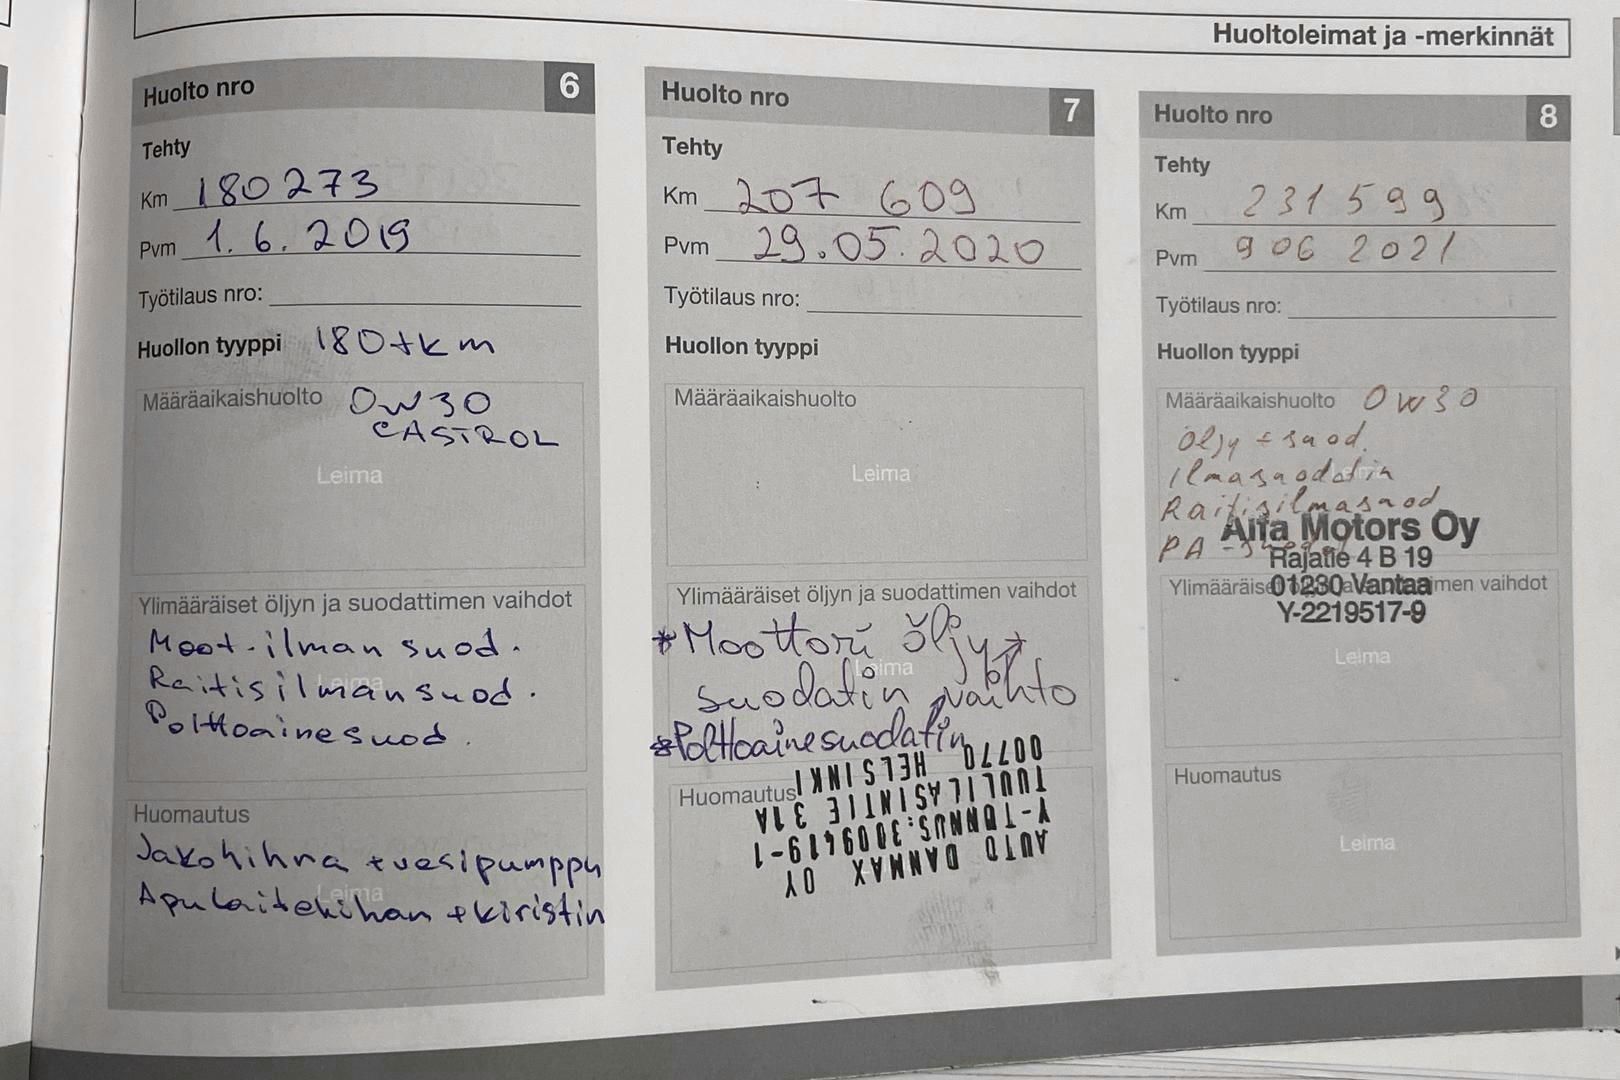 Huoltoleimat ja -merkinnät
Huolto nro 6
Tehty
Km 180 273
Pvm 1.6.2019
Työtilaus nro:
Huollon tyyppi 180tkm
Määräaikaishuolto 0W30
CASTROL
Leima
Ylimääräiset öljyn ja suodattimen vaihdot
Moot.ilman suod.
Raitisilmansuod.
Leima
Polttoainesuod.
Huomautus
Jakohihna + vesipumppu
Leima
Apulaitehihan + kiristin
Huolto nro 7
Tehty
Km 207 609
Pvm 29.05.2020
Työtilaus nro:
Huollon tyyppi
Määräaikaishuolto
Leima
Ylimääräiset öljyn ja suodattimen vaihdot
* Moottori öljy +
Leima
suodatin vaihto
* Polttoainesuodatin
Huomautus
AUTO DANMAX OY
Y-TUNNUS:3009419-1
TUULILASINTIE 31A
00770 HELSINKI
Huolto nro 8
Tehty
Km 231 599
Pvm 9 06 2021
Työtilaus nro:
Huollon tyyppi
Määräaikaishuolto 0W30
Öljy + suod.
Ilmasuodatin
Raitisilmasuod
PA -suod
Alfa Motors Oy
Rajatie 4 B 19
01230 Vantaa
Y-2219517-9
Ylimääräiset öljyn ja suodattimen vaihdot
Leima
Huomautus
Leima